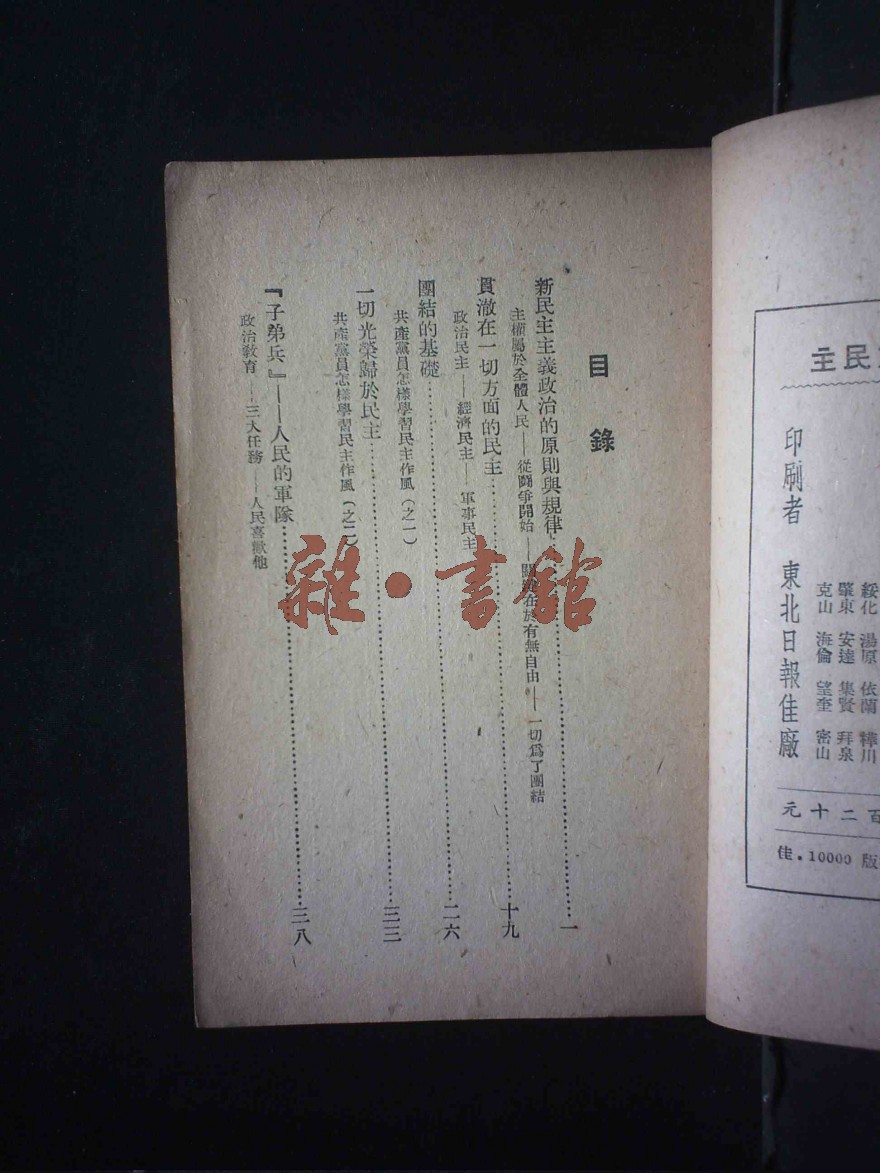 主民
印刷者 東北日報佳廠
綏化 湯原 依蘭 樺川
肇東 安達 集賢 拜泉
克山 海倫 望奎 密山
元十二百
佳．10000 版
目錄
新民主主義政治的原則與規律……一
主權屬於全體人民——從鬪爭開始——關鍵在於有無自由——一切爲了團結
貫澈在一切方面的民主……十九
政治民主——經濟民主——軍事民主
團結的基礎……二六
共產黨員怎樣學習民主作風（之一）
一切光榮歸於民主……三三
共產黨員怎樣學習民主作風（之二）
『子弟兵』——人民的軍隊……三八
政治教育——三大任務——人民喜歡他
雜·書館